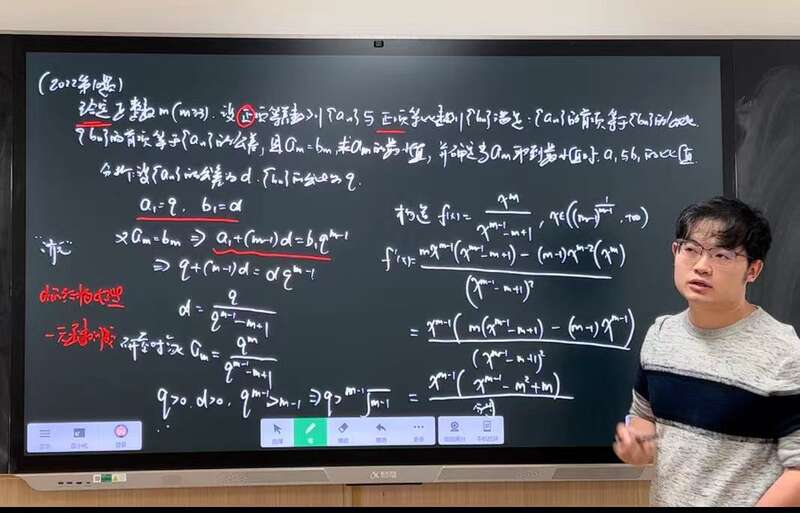 (2022第10题)
给定正整数m(m≥3).设正项等差数列{an}与正项等比数列{bn}满足:{an}的首项等于{bn}的公比,
{bn}的首项等于{an}的公差,且am=bm,求am的最小值,并确定当am取到最小值时a1与b1的比值.
分析:设{an}的公差为d.{bn}的公比为q.
a1=q, b1=d
又am=bm ⇒ a1+(m-1)d=b1q^{m-1}
⇒ q+(m-1)d=dq^{m-1}
d=q/(q^{m-1}-m+1)
一元函数
am=q^m/(q^{m-1}-m+1)
q>0.d>0, q^{m-1}>m-1 ⇒ q>^{m-1}√(m-1)
构造 f(x)=x^m/(x^{m-1}-m+1), x∈((m-1)^{1/(m-1)}, +∞)
f'(x)=(mx^{m-1}(x^{m-1}-m+1)-(m-1)x^{m-2}(x^m))/(x^{m-1}-m+1)^2
=x^{m-1}(m(x^{m-1}-m+1)-(m-1)x^{m-1})/(x^{m-1}-m+1)^2
=x^{m-1}(x^{m-1}-m^2+m)/分母
选择
笔
擦除
撤销
更多